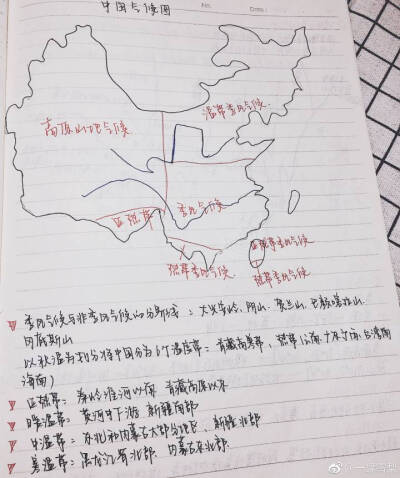 中国气候图
No.
Date.
温带季风气候
高原山地气候
亚热带
季风气候
热带季风气候
亚热带季风气候
热带季风气候
季风气候与非季风气候的分界线：大兴安岭，阴山，贺兰山，巴颜喀拉山，
冈底斯山
以积温为划分将中国分为6个温度带：青藏高寒带，热带（
海南）
亚热带：秦岭淮河以南，青藏高原以东
暖温带：黄河中下游，新疆南部
中温带：东北和内蒙古大部分地区，新疆北部
寒温带：黑龙江省北部，内蒙古东北部